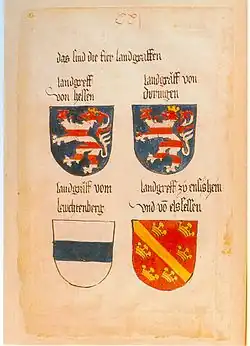 das sind die fier landgraffen
landgreff
von hessen
landgraff von
doringen
landgraff vom
leuchtenberg
landgreff zu enlishem
vnd vo elsessen